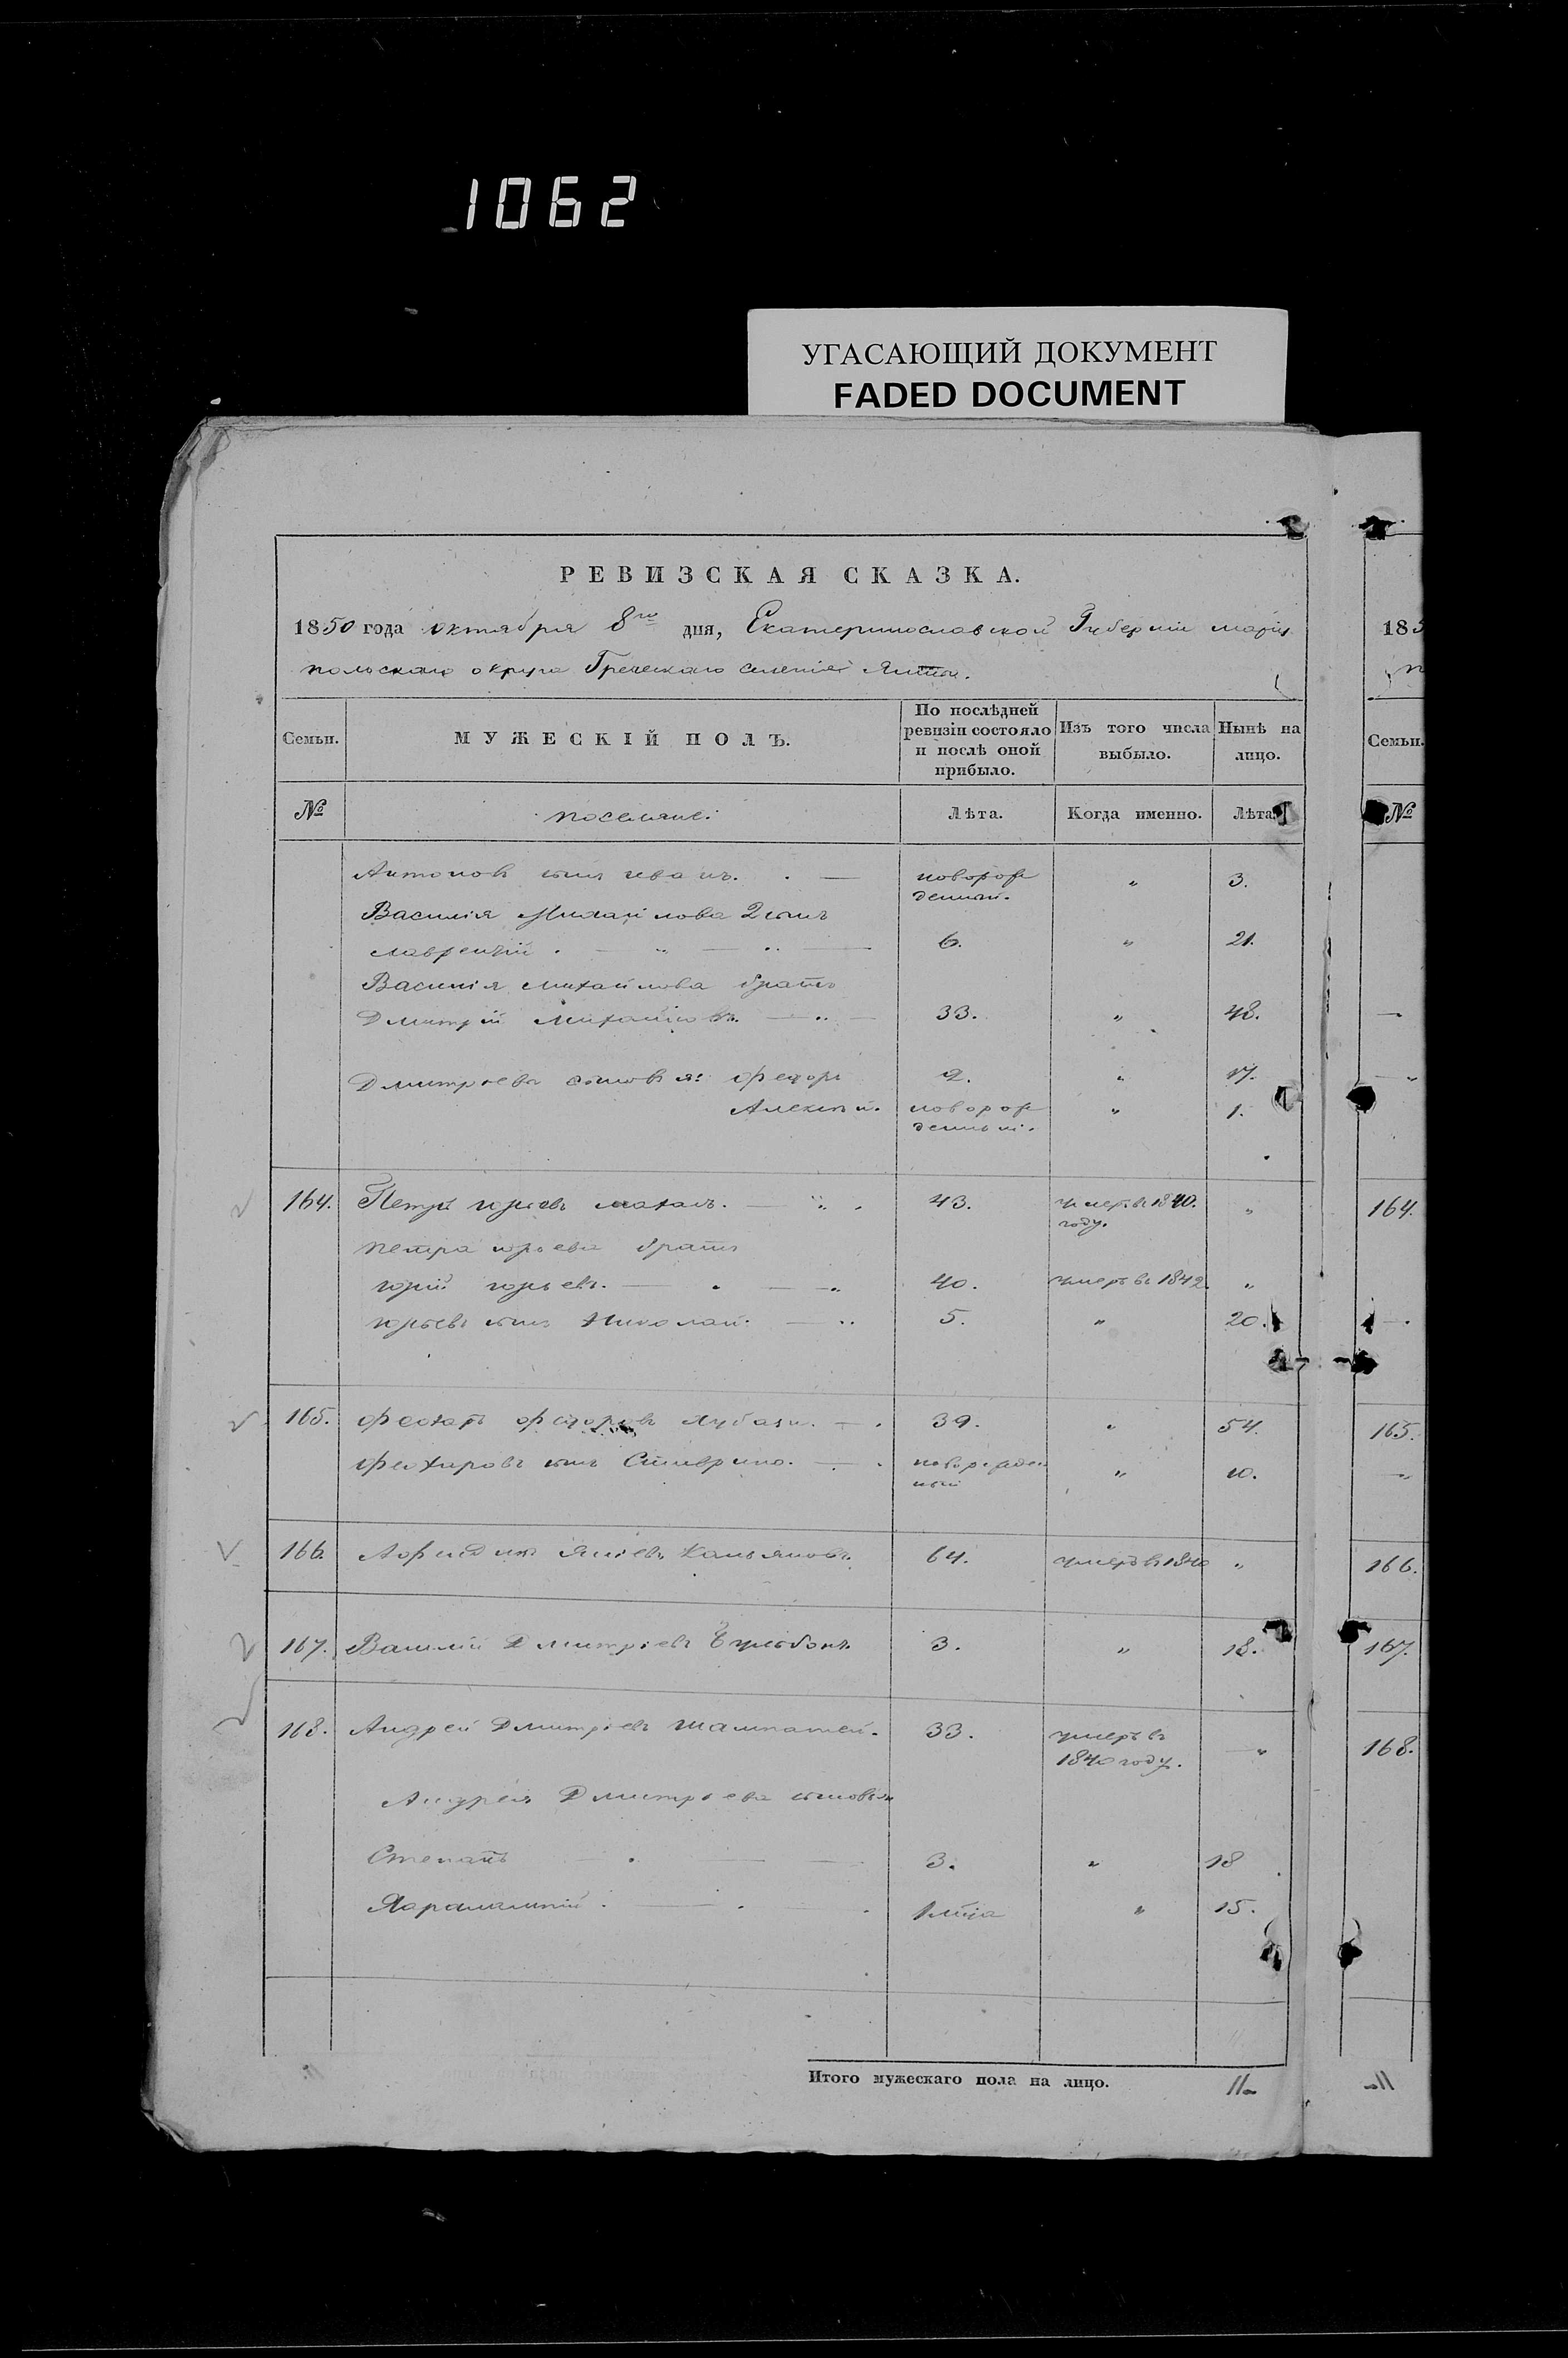 1062
УГАСАЮЩИЙ ДОКУМЕНТ
FADED DOCUMENT
РЕВИЗСКАЯ СКАЗКА.
1850 года октября 8го дня, Екатеринославской Губерніи маріу
польскаго округа Греческаго селенія Ялты.
Семьи. МУЖЕСКІЙ ПОЛЪ. По послѣдней ревизіи состояло и послѣ оной прибыло. Изъ того числа выбыло. Нынѣ на лицо.
№ поселяне: Лѣта. Когда именно. Лѣта.
Антоновъ сынъ иванъ. новорож денный. " 3.
Василія Михайлова 2 сынъ
лаврентій. 6. " 21.
Василія михайлова братъ
Дмитрій михайловъ. 33. " 48.
Дмитріева сыновья: федоръ 2. " 17.
Алексей. новорож денный. " 1.
164. Петръ юрьевъ махалъ. 43. умеръ въ 1840. году. "
петра юрьева братъ
юрій юрьевъ. 40. умеръ въ 1842. "
юрьевъ сынъ Николай. 5. " 20.
165. федоровъ 39. " 54.
сынъ новорожден ный " 10.
166. 64. умеръ въ 1840 "
167. Василій Дмитріевъ 3. " 18.
168. Андрей Дмитріевъ 33. умеръ въ 1840 году. "
Андрея Дмитріева сыновья
Степанъ 3. " 18
Харалампій. 1 мца " 15.
Итого мужескаго пола на лицо. 11
185
Семьи.
№
164.
165.
166.
167.
168.
11